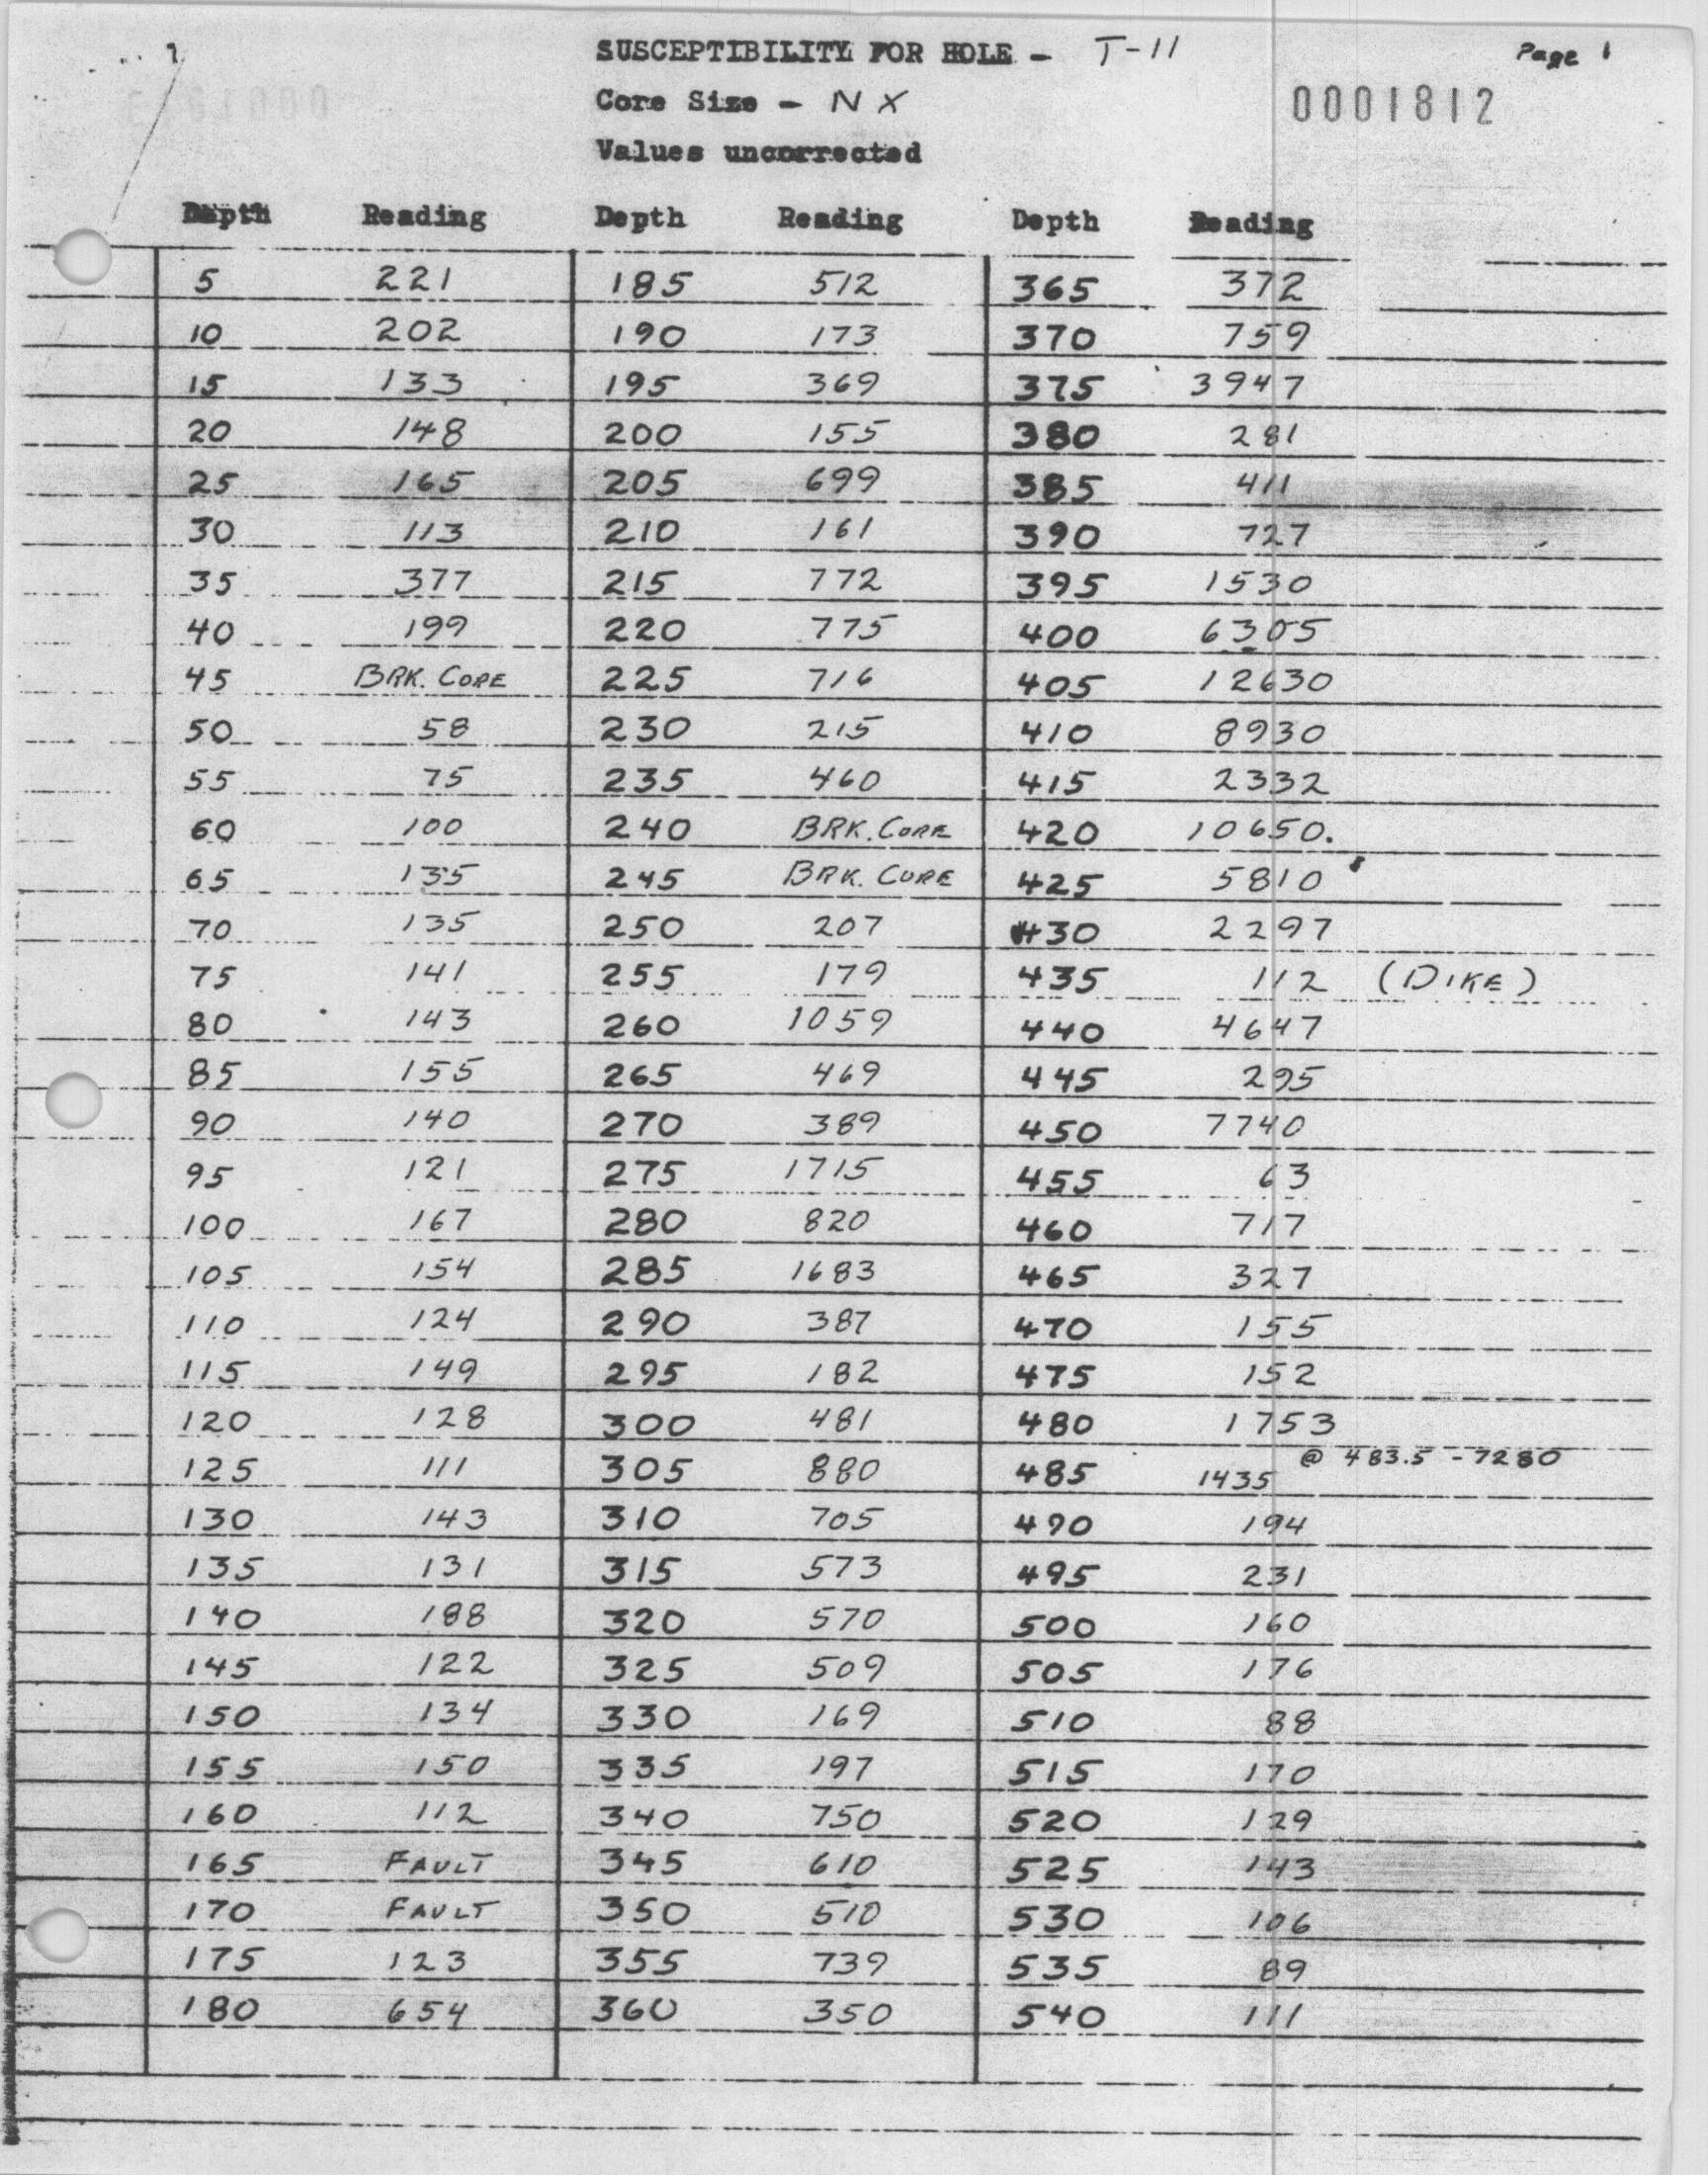 SUSCEPTIBILITY FOR HOLE - T-11 Page 1
Core Size - NX 0001812
Values uncorrected
Depth Reading Depth Reading Depth Reading
5 221 185 512 365 372
10 202 190 173 370 759
15 133 195 369 375 3947
20 148 200 155 380 281
25 165 205 699 385 411
30 113 210 161 390 727
35 377 215 772 395 1530
40 199 220 775 400 6305
45 BRK. CORE 225 716 405 12630
50 58 230 215 410 8930
55 75 235 460 415 2332
60 100 240 BRK. CORE 420 10650.
65 135 245 BRK. CORE 425 5810
70 135 250 207 430 2297
75 141 255 179 435 112 (DIKE)
80 143 260 1059 440 4647
85 155 265 469 445 295
90 140 270 389 450 7740
95 121 275 1715 455 63
100 167 280 820 460 717
105 154 285 1683 465 327
110 124 290 387 470 155
115 149 295 182 475 152
120 128 300 481 480 1753
@ 483.5 - 7280
125 111 305 880 485 1435
130 143 310 705 490 194
135 131 315 573 495 231
140 188 320 570 500 160
145 122 325 509 505 176
150 134 330 169 510 88
155 150 335 197 515 170
160 112 340 750 520 129
165 FAULT 345 610 525 143
170 FAULT 350 510 530 106
175 123 355 739 535 89
180 654 360 350 540 111